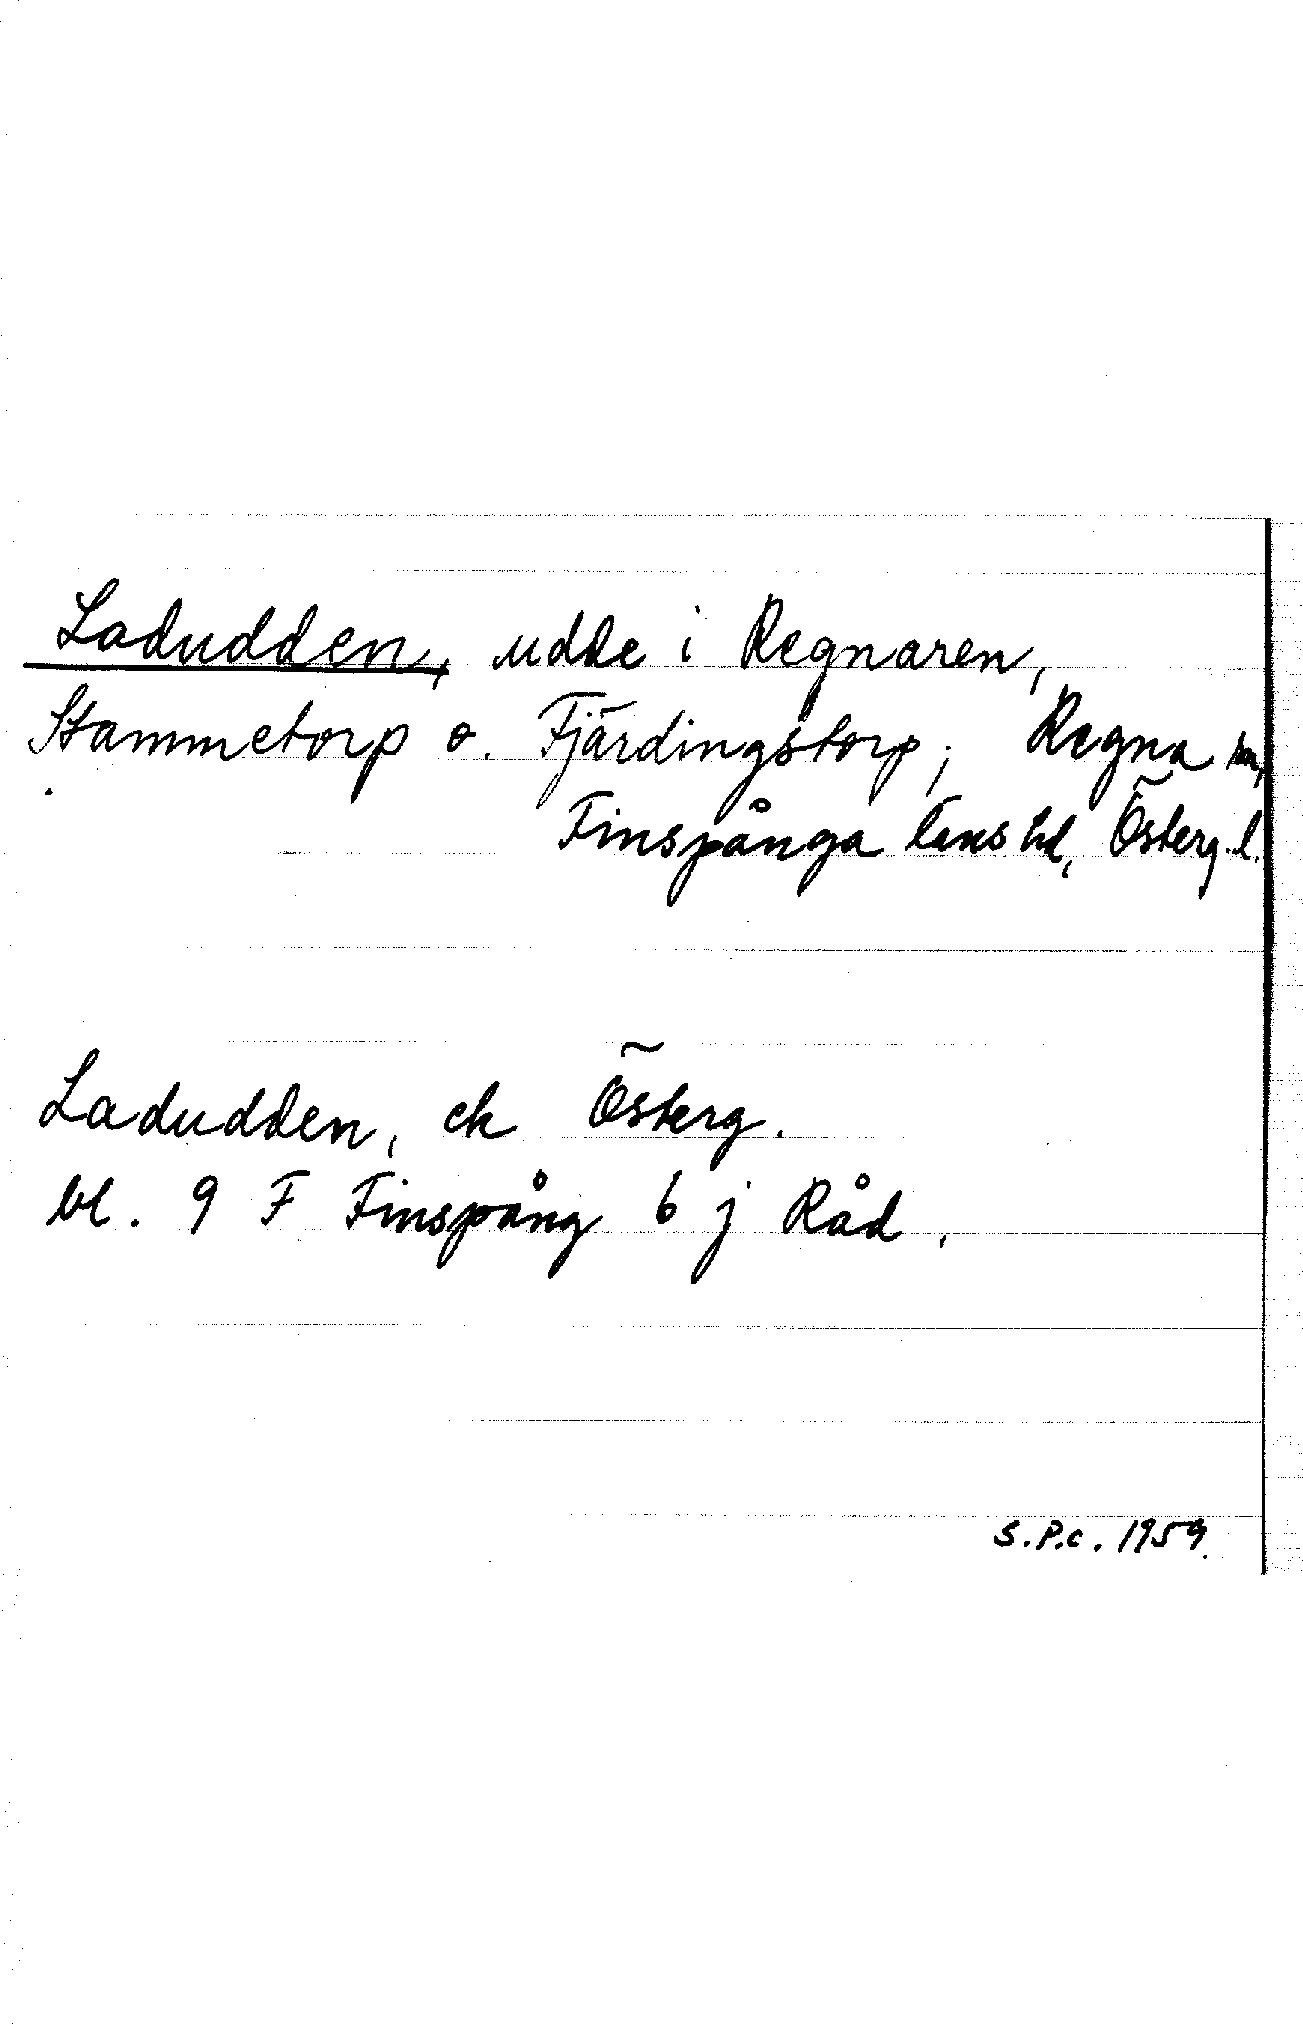 Ladudden, udde i Regnaren,
Stammetorp o. Fjärdingstorp, Regna sn,
Finspånga läns hd, Österg. l.
Ladudden, ek Österg.
bl. 9 F Finspång 6 j Råd.
S.P.C. 1959.